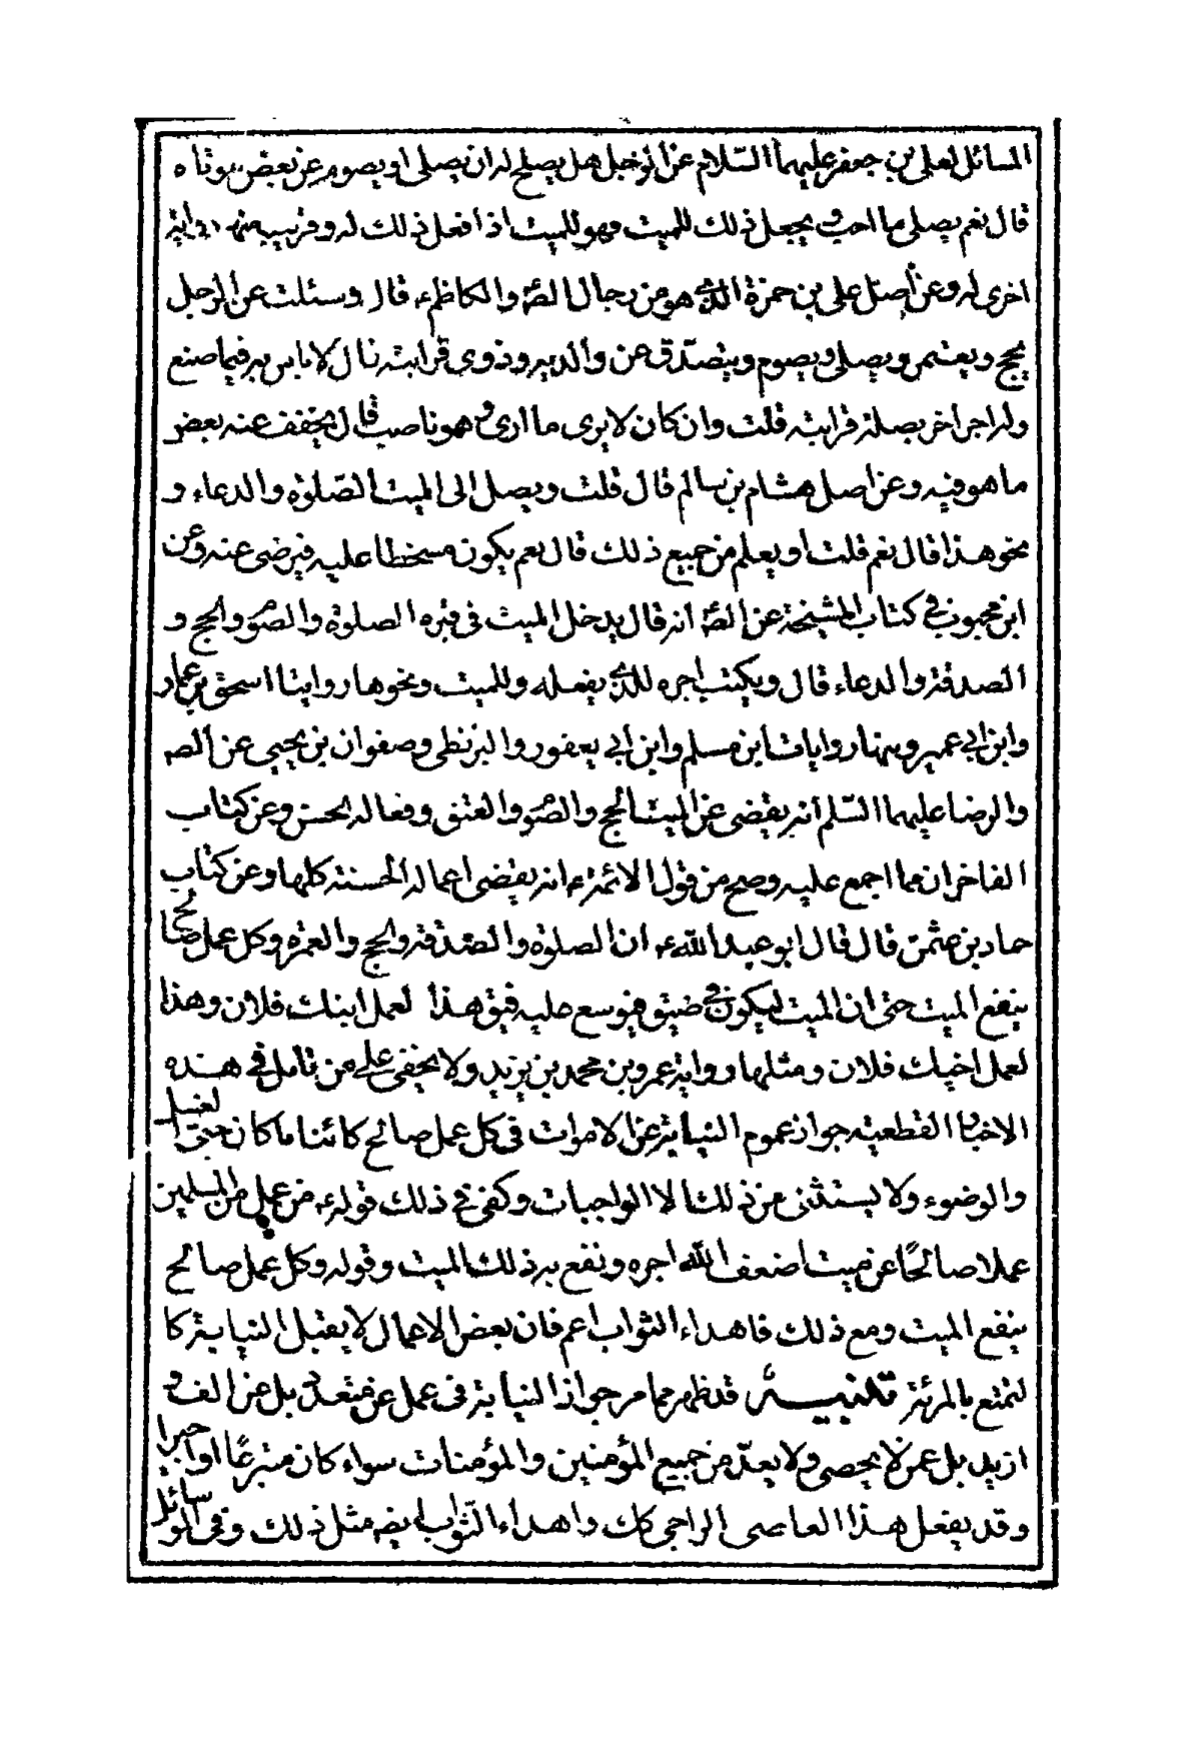 المسائل لعلى بن جعفر عليهما السّلام عن الرجل هل يصلح له ان يصلى او يصوم عن بعض موتاه
قال نعم يصلى ما احب و يجعل ذلك للميت فهو للميت اذا فعل ذلك له و قريب منه رواية
اخرى له و عن اصل على بن حمزة الذى هو من رجال الصّ والكاظم ع قال و سئلت عن الرجل
يحج و يعتمر و يصلى و يصوم و يتصدّق عن والديه و ذوى قرابته قال لا باس به فيما صنع
وله اجر اخر بصلة قرابته قلت وان كان لا يرى ما ارى و هو ناصب قال يخفف عنه بعض
ما هو فيه و عن اصل هشام بن سالم قال قلت و يصل الى الميت الصّلوة والدعاء و
نحو هذا قال نعم قلت او يعلم من جميع ذلك قال نعم يكون مسخطا عليه فيرضى عنه و عن
ابن محبوب فى كتاب المشيخة عن الصّ انه قال يدخل الميت فى قبره الصلوة والصّو والحج و
الصدقة والدعاء قال و يكتب اجره للذى يفعله وللميت و نحوها روايتا اسحق بن عمار
وابن ابى عمير و منها روايات ابن مسلم وابن ابى يعفور والبزنطى و صفوان بن يحيى عن الصه
والرضا عليهما السّلم انه يقضى عن الميت الحج والصّو والعتق و فعاله الحسن و عن كتاب
الفاخر ان مما اجمع عليه و صح من قول الائمة ع انه يقضى اعماله الحسنة كلها و عن كتاب
حماد بن عثمن قال قال ابو عبد الله ع ان الصلوة والصّدقة والحج والعمرة و كل عمل صالح
ينفع الميت حتى ان الميت ليكون فى ضيق فيوسع عليه فيق هذا لعمل ابنك فلان و هذا
لعمل اخيك فلان و مثلها رواية عمرو بن محمد بن يزيد ولا يخفى على من تامل فى هذه
الاخبار القطعية جواز عموم النيابة عن الاموات فى كل عمل صالح كائنا ما كان حتى الغسل
والوضوء ولا يستثنى من ذلك الا الواجبات و كفى فى ذلك قوله ع من عمل من المسلمين
عملا صالحًا عن ميت اضعف الله اجره و نفع به ذلك الميت و قوله و كل عمل صالح
ينفع الميت و مع ذلك فاهداء الثواب اعم فان بعض الاعمال لا يقبل النيابة كا
لتمتع بالمرئة تنبيه قد ظهر مما مر جواز النيابة فى عمل عن متعدد بل عن الف و
ازيد بل عمن لا يحصى ولا يعدّ من جميع المؤمنين والمؤمنات سواء كان متبرعًا او اجيرا
و قد يفعل هذا العاصى الراجى كك واهداء الثواب ايضه مثل ذلك و فى الوسائل